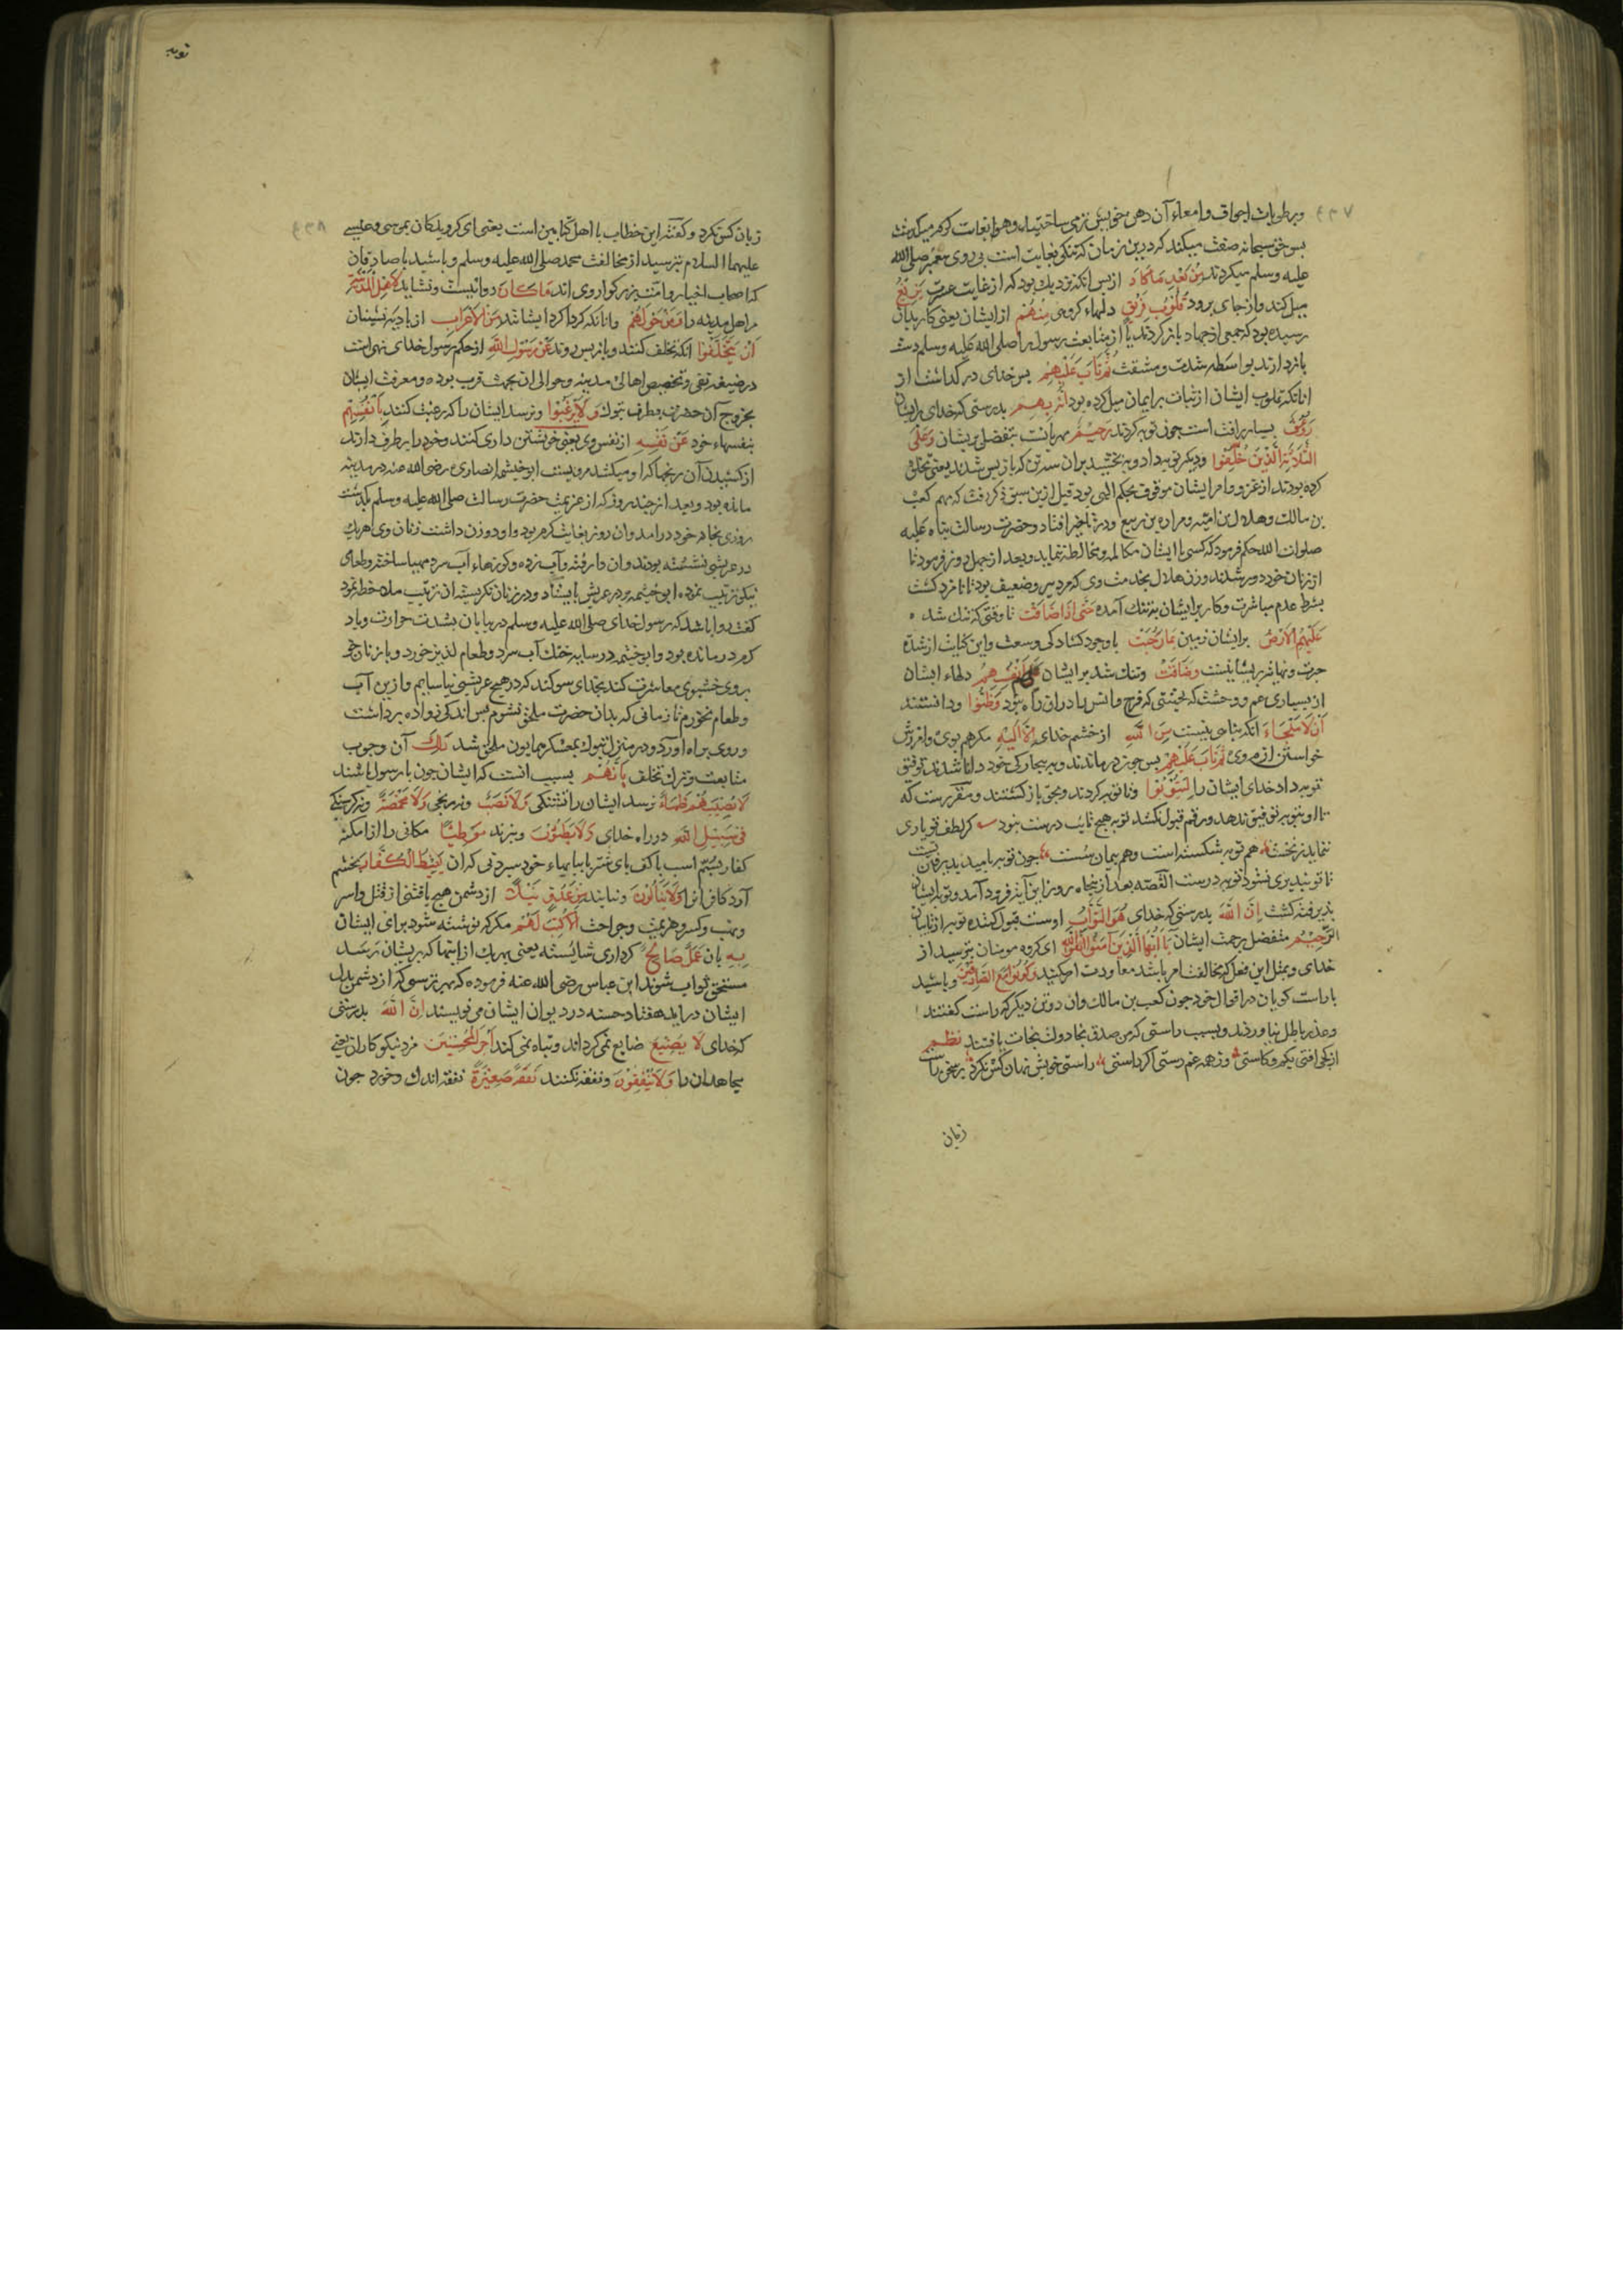 ۴۳۷
وبرطوبات اجواف وامعاء آن دهن خویش ترمی ساختند و هوا بغایت گرم میگذشت
پس حق سبحانه صفت میکند که درین زمان که تنکی بغایت است پی روی پیغمبر صلی الله
علیه وسلم میکردند مِنْ بَعْدِ مَا كَادَ از پس انکه نزدیك بود که از غایت عسرت يَزِيغُ
میل کند واز جای برود قُلُوبُ فَرِيقٍ دلهاء کروهی مِنْهُمْ از ایشان یعنی کار بدان
رسیده بود که جمعی از جهاد باز کردند یا از متابعت رسول صلی الله علیه وسلم دست
بازدارند بواسطه شدت ومشقت ثُمَّ تَابَ عَلَيْهِمْ پس خدای در کذاشت از
انانکه قلوب ایشان از ثبات بر ایمان میل کرده بود إِنَّهُ بِهِمْ بدرستی که خدای بایشان
رَؤُفٌ بسیار رافت است چون توبه کردند رَحِيمٌ مهربانست بتفضل بریشان وَعَلَى
الثَّلَاثَةِ الَّذِينَ خُلِّفُوا ودیکر توبه داد وببخشید بران سه تن که باز پس شدند یعنی تخلف
کرده بودند از غزو وامر ایشان موقوف بحکم الهی بود قبل ازین سبق ذکر رفت که مهم کعب
بن مالك وهلال بن امیه ومراره بن ربیع در تاخیر افتاد وحضرت رسالت پناه علیه
صلوات الله حکم فرمود که کسی با ایشان مکالمه ومخالطه ننماید وبعد از چهل روز فرمود تا
از زنان خود دور شدند وزن هلال بخدمت وی که مرد پیر وضعیف بود نامزد کشت
بشرط عدم مباشرت وکار بر ایشان بتنك آمده حَتَّى إِذَا ضَاقَتْ تا وقتی که تنك شد
عَلَيْهِمُ الْأَرْضُ بر ایشان زمین بِمَا رَحُبَتْ با وجود کشادکی ووسعت واین کنایت از شدة
حیرت ونهایت پریشانیست وَضَاقَتْ وتنك شد بر ایشان عَلَيْهِمْ أَنْفُسُهُمْ دلهاء ایشان
از بسیاری غم ووحشت که بحیثیتی که فرح وانس را دران راه نبود وَظَنُّوا ودانستند
أَنْ لَا مَلْجَأَ انکه پناهی نیست مِنَ اللَّهِ از خشم خدای إِلَّا إِلَيْهِ مکر هم بوی وامرزش
خواستن از وی ثُمَّ تَابَ عَلَيْهِمْ پس چون در ماندند وببیچارکی خود دانا شدند توفیق
توبه داد خدای ایشان را لِيَتُوبُوا وتا توبه کردند وبحق باز کشتند ومقرر است که
تا او بتوبه توفیق ندهد ورقم قبول نکشد توبه هیچ تایب درست نبود کر لطف تو یاری
ننماید ز نخست هم توبه شکسته است وهم پیمان سست چون توبه بامید پذیرفتن تست
تا تو نپذیری نشود توبه درست القصه بعد از پنجاه روز این آیه فرود آمد وتوبه ایشان
پذیرفته کشت إِنَّ اللَّهَ بدرستی که خدای هُوَ التَّوَّابُ اوست قبول کننده توبه از تایبان
الرَّحِيمُ متفضل برحمت ایشان يَا أَيُّهَا الَّذِينَ آمَنُوا اتَّقُوا اللَّهَ ای کروه مومنان بترسید از
خدای وبمثل این فعل که مخالفت امر باشد معاودت مکنید وَكُونُوا مَعَ الصَّادِقِينَ وباشید
با راست کویان در اقوال خود چون کعب بن مالك وان دو تن دیکر که راست کفتند
وعذر باطل نیاوردند وبسبب راستی که من صدق نجا دولت نجات یافتند نظم
از کجی افتی بکم وکاستی وز همه غم رستی اکر راستی راستی خویش نهان کس نکرد بر سخن راست
زیان
توبه
۴۳۸
زیان کس نکرد وکفته‌اند این خطاب با اهل کتابین است یعنی ای کرویدکان بموسی وعیسی
علیهما السلام بترسید از مخالفت محمد صلی الله علیه وسلم وباشید با صادقان
که اصحاب اخیار وامت بزرکوار وی اند مَا كَانَ روا نیست ونشاید لِأَهْلِ الْمَدِينَةِ
مر اهل مدینه را وَمَنْ حَوْلَهُمْ وانانکه کرد اکرد ایشانند مِنَ الْأَعْرَابِ از بادیه نشینان
أَنْ يَتَخَلَّفُوا انکه تخلف کنند وباز پس روند عَنْ رَسُولِ اللَّهِ از حکم رسول خدای نهی است
در صیغه نفی وتخصیص اهالی مدینه وحوالی ان بجهت قرب بوده ومعرفت ایشان
بخروج آن حضرت بطرف تبوك وَلَا يَرْغَبُوا ونرسد ایشان را که رغبت کنند بِأَنْفُسِهِمْ
بنفسهاء خود عَنْ نَفْسِهِ از نفس وی یعنی خویشتن داری کنند وخود را برطرف دارند
از کشیدن آن رنجها که او میکشد مرویست ابو خیثمه انصاری رضی الله عنه در مدینه
مانده بود وبعد از چند روز که از عزیمت حضرت رسالت صلی الله علیه وسلم بکذشت
روزی بخانه خود درامد وان روز بغایت کرم بود واو دو زن داشت زنان وی هریك
در عریشی نشسته بودند وان را رفته وآب زده وکوزهاء آب سرد مهیا ساخته وطعامی
نیکو ترتیب نموده ابو خیثمه بر در عریش بایستاد ودر زنان نکریسته ان ترتیب ملاحظه نمود
کفت روا باشد که رسول خدای صلی الله علیه وسلم در بیابان بشدت حرارت وباد
کرم درمانده بود وابو خیثمه در سایه خنك آب سرد وطعام لذیذ خورد وبا زنان خوب
روی خشبوی معاشرت کند بخدای سوکند که در هیچ عریشی نیاسایم وازین آب
وطعام نخورم تا زمانی که بدان حضرت ملحق نشوم پس اندکی زواده برداشت
وروی براه اورد ودر منزل تبوك بمعسکر همایون ملحق شد ذَلِكَ آن وجوب
متابعت وترك تخلف بِأَنَّهُمْ بسبب انست که ایشان چون با رسول باشند
لَا يُصِيبُهُمْ ظَمَأٌ نرسد ایشان را تشنکی وَلَا نَصَبٌ ونه رنجی وَلَا مَخْمَصَةٌ ونه کرسنکی
فِي سَبِيلِ اللَّهِ در راه خدای وَلَا يَطَئُونَ ونبرند مَوْطِئًا مکانی را از امکنه
کفار بسم اسب یا کف پای شتر یا بپایهاء خود سپردنی که ان يَغِيظُ الْكُفَّارَ بخشم
آورد کافرانرا وَلَا يَنَالُونَ ونیابند مِنْ عَدُوٍّ نَيْلًا از دشمن هیچ یافتنی از قتل واسر
ونهب وکسر وهزیمت وجراحت إِلَّا كُتِبَ لَهُمْ مکر که نوشته شود برای ایشان
بِهِ بان عَمَلٌ صَالِحٌ کرداری شایسته یعنی بهریك از اینها که بریشان رسد
مستحق ثواب شوند ابن عباس رضی الله عنه فرموده که بهر ترسی که از دشمن بدل
ایشان دراید هفتاد حسنه در دیوان ایشان می نویسند إِنَّ اللَّهَ بدرستی
که خدای لَا يُضِيعُ ضایع نمی کرداند وتباه نمی کند أَجْرَ الْمُحْسِنِينَ مزد نیکوکاران یعنی
مجاهدان را وَلَا يُنْفِقُونَ ونفقه نکنند نَفَقَةً صَغِيرَةً نفقه اندك وخورد چون